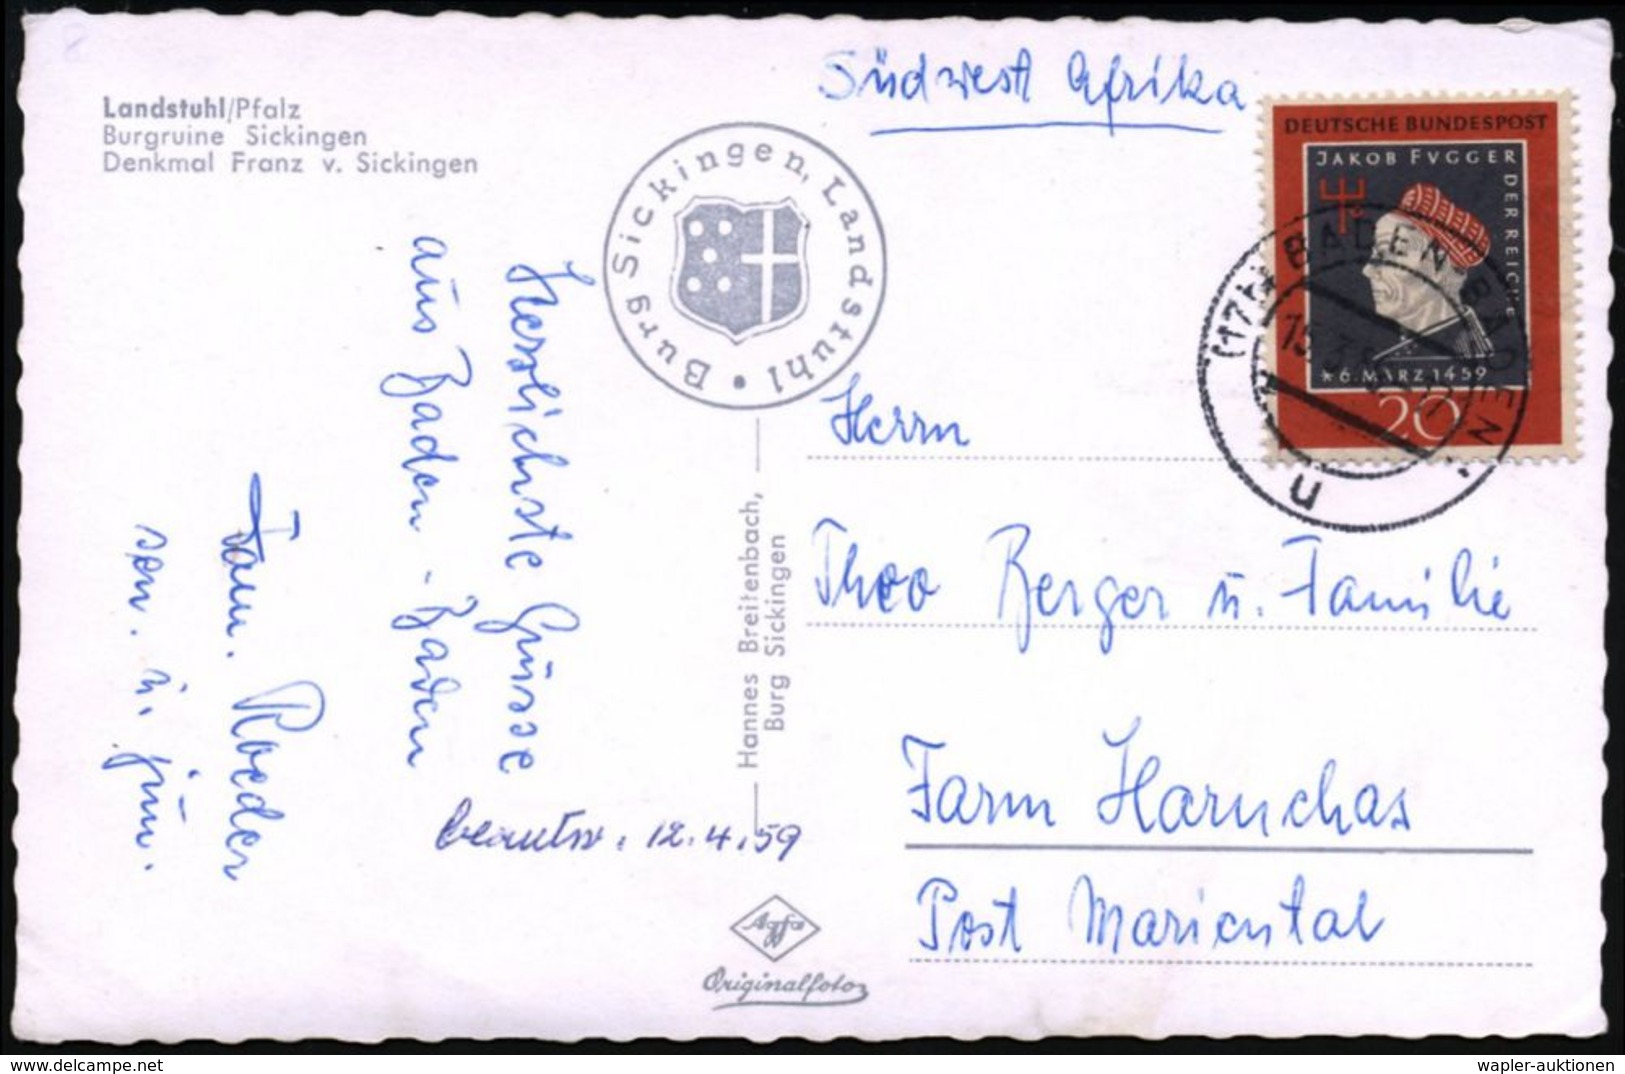 Landstuhl/Pfalz
Burgruine Sickingen
Denkmal Franz v. Sickingen
Burg Sickingen, Landstuhl •
Herzlichste Grüsse
aus Baden-Baden
Fam. Roeder
sen. u. jun.
beantw. 12.4.59
Hannes Breitenbach,
Burg Sickingen
Agfa
Originalfoto
Südwest Afrika
DEUTSCHE BUNDESPOST
JAKOB FVGGER
DER REICHE
* 6. MÄRZ 1459
20
(17b) BADEN-BADEN
n
Herrn
Theo Berger u. Familie
Farm Haruchas
Post Mariental
© www.delcampe.net
wapler-auktionen